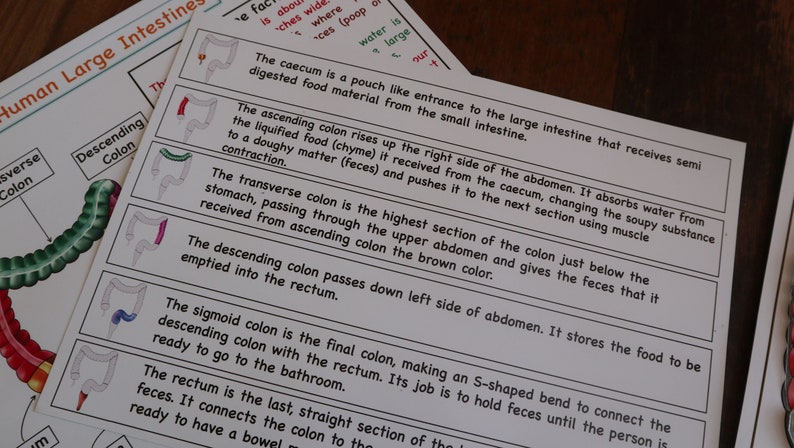 Human Large Intestines
Descending
Colon
Colon
water is
large
The caecum is a pouch like entrance to the large intestine that receives semi
digested food material from the small intestine.
The ascending colon rises up the right side of the abdomen. It absorbs water from
the liquified food (chyme) it received from the caecum, changing the soupy substance
to a doughy matter (feces) and pushes it to the next section using muscle
contraction.
The transverse colon is the highest section of the colon just below the
stomach, passing through the upper abdomen and gives the feces that it
received from ascending colon the brown color.
The descending colon passes down left side of abdomen. It stores the food to be
emptied into the rectum.
The sigmoid colon is the final colon, making an S-shaped bend to connect the
descending colon with the rectum. Its job is to hold feces until the person is
ready to go to the bathroom.
The rectum is the last, straight section of the
feces. It connects the colon to the
ready to have a bowel